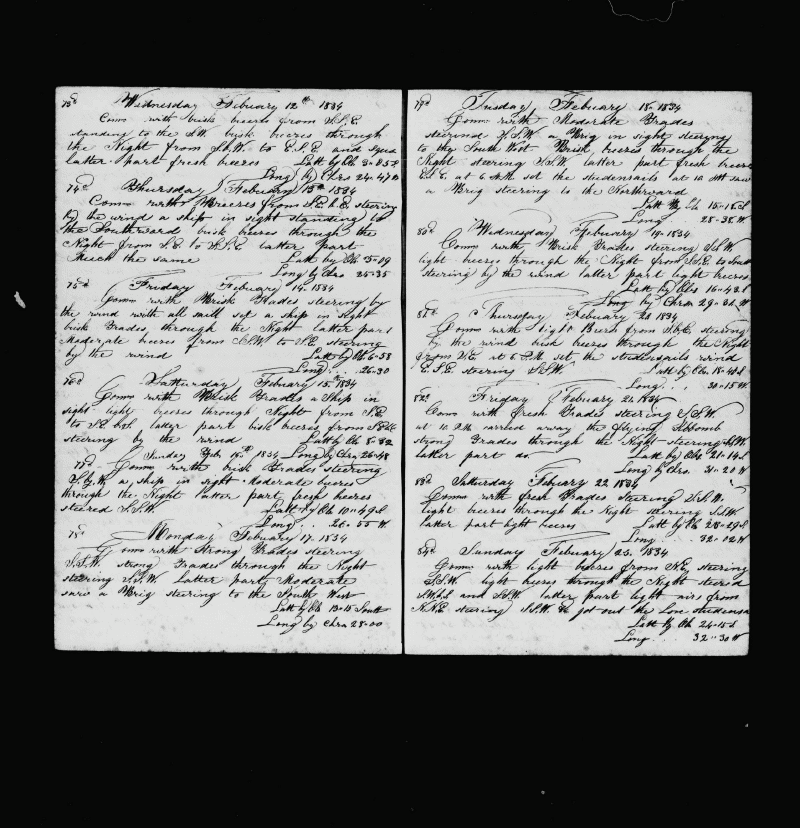 73d Wednesday Febuary 12th 1834
Comm with brisk breeses from S.S.E
standing to the S.W. brisk breeses through
the Night from S.S.W. to E.S.E and
latter part fresh breeses Latt by Ob 3"25 S
Long by Chro 24-47 W
74d Thursday Febuary 13th 1834
Comm with Breeses from steering
by the wind a ship in sight standing to
the Southward brisk beeses through the
Night from S.E to S.S.E latter part
much the same Latt by Ob 5-09
Long by Chro 25-35
75d Friday Febuary 14 1834
Comm with Brisk Trades steering by
the wind with all saill set a ship in sight
brisk Trades, through the Night latter part
Moderate beeses from S.S.W to S.E. steering
by the wind Latt by Ob 6-58
Long 26-30
76d Satturday Febuary 15th 1834
Comm with Brisk Trades a Ship in
sight light beeses through Night from S.E
to latter part brisk beeses from
steering by the wind Latt by Ob 8-32
Sunday Feb 16th 1834 Long by Chro 26-48
77d Comm with brisk Trades steering
a, ship in sight Moderate beeses
through the Night latter part, fresh beeses
steered S.S.W Latt by Ob 10"49 S
Long 26-55 W
78d Monday Febuary 17 1834
Comm with Strong Trades steering
S.S.W. strong Trades through the Night
steering S.S.W Latter part, Moderate
saw a Brig steering to the South West
Latt by Ob 13-15 South
Long by Chro 28-00
79d Tusday Febuary 18-1834
Comm with Moderate Trades
steerind S.S.W a Brig in sight steering
to the South West Brisk, beeses through the
Night steering S.S.W latter part fresh beeses
at 6 AM set the studensails at 10 AM saw
a Brig steering to the Northward
Latt By Ob 15-18 S
Long 28-38 W
80d Wednesday Febuary 19-1834
Comm with Brisk Trades steering S.S.W
light beeses through the Night from S.S.E to South
steering by the wind latter part light beeses
Latt by Obs 16-43 S
Long by Chro 29-32 W
81d Thursday Febuary 20 1834
Comm with light from steering
by the wind brisk beeses through the Night
from S.E. at 6 P.M. set the studensails wind
E.S.E. steering S.S.W. Latt by Ob 18-40 S
Long 30"15 W
82d Friday Febuary 21 1834
Comm with fresh Trades steering S.S.W.
at 10 P.M carried away the flying
strong Trades through the Night steering S.S.W.
latter part do. Latt by Ob 21-14 S
Long by Chro. 31-20 W
83d Satturday Febuary 22 1834
Comm with fresh Trades Steering S.S.W.
light beeses through the Night steering S.S.W
latter part light beeses Latt by Ob 23"29 S
Long 32"02 W
84d Sunday Febuary 23. 1834
Comm with light beeses from N.E, steering
S.S.W. light beeses through the Night steered
and S.S.W. latter part light airs from
N.N.E steering S.S.W. & got out the Low studensa
Latt By Ob 24-15 S
Long 32"30 W